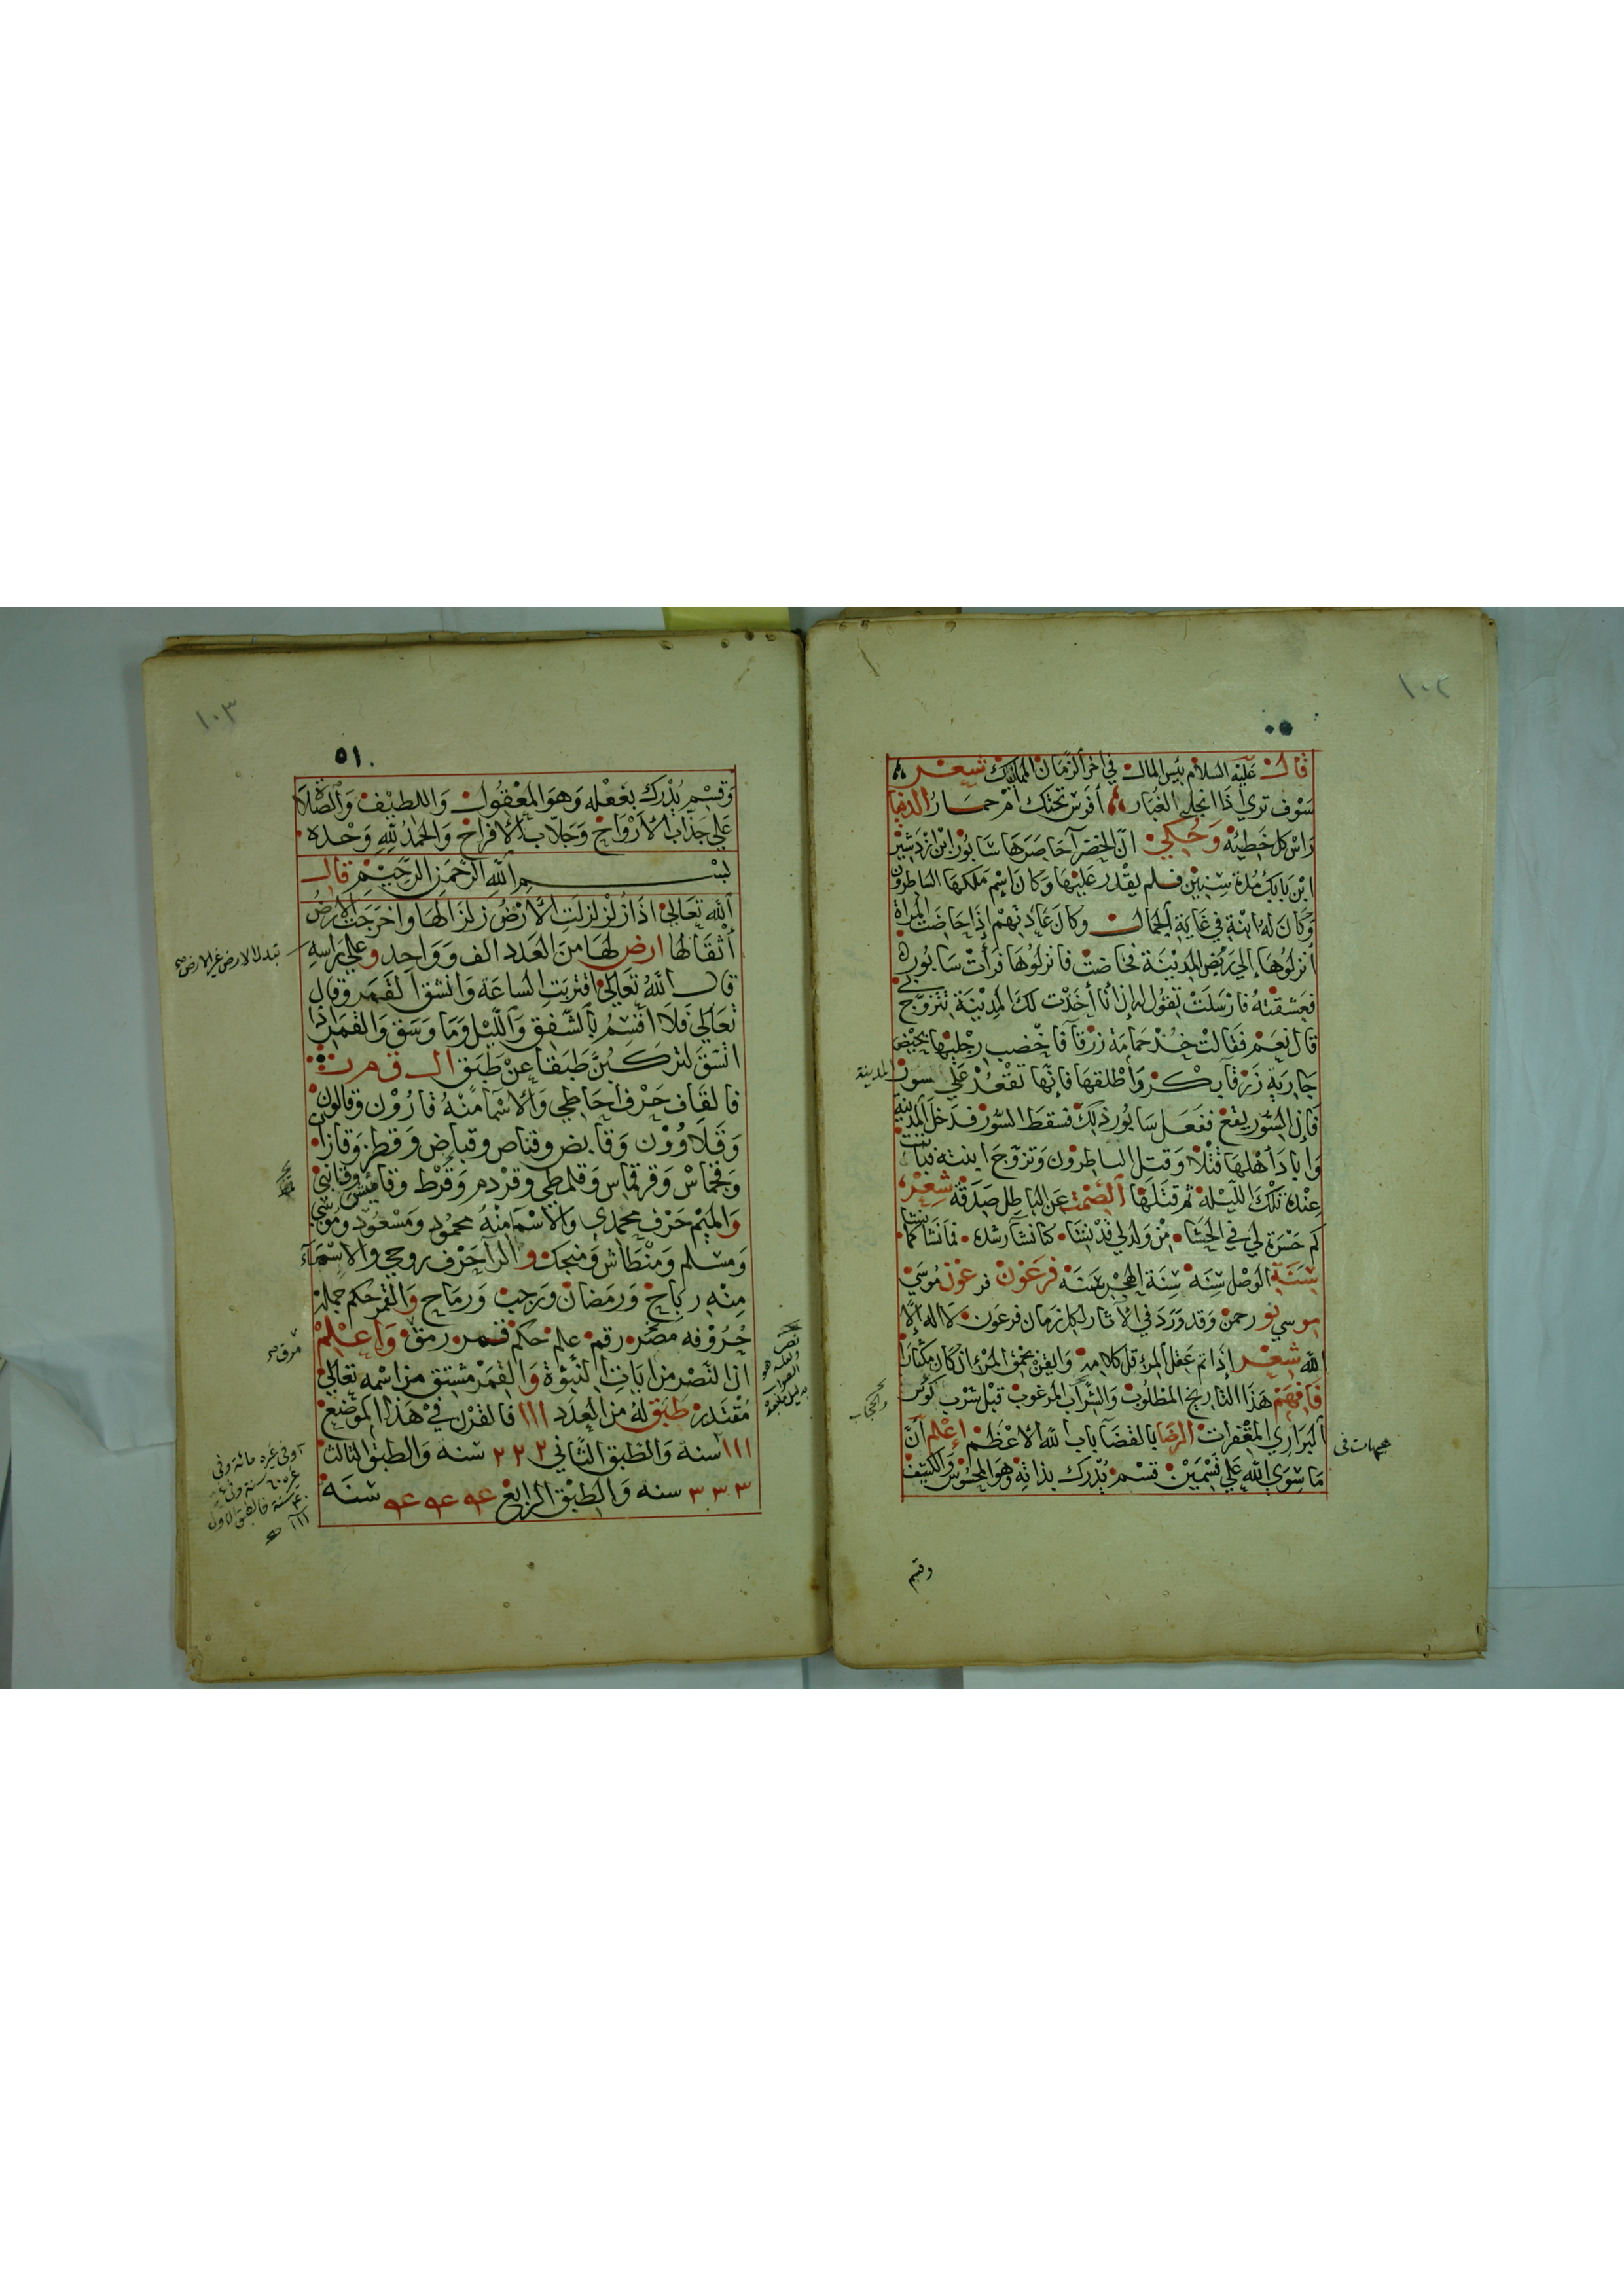 ١٠٢
٥٠
قال عليه السلام بئس المال في اخر الزمان المماليك شعر
سوف تري اذا انجلي الغبار أفرس تحتك أم حمار الدنيا
راس كل خطيئة وحكي ان الخضر احاصرها سابور ابن ازدشير
ابن بابك مدة سنيين فلم يقدر عليها وكان اسم ملكها الساطرون
وكان له ابنة في غاية الجمال وكان عادتهم إذا حاضت المراة
أنزلوها إلي ربض المدينة فحاضت فانزلوها فرأت سابور
فعشقته فارسلت تقول له إن أنا أخذت لك المدينة تتزوج بي
قال نعم فقالت خذ حمامة زرقا فاخضب رجليها بحيض
جارية زرقا بكر وأطلقها فإنها تقعد علي سور المدينة
فإن السور يقع ففعل سابور ذلك فسقط السور فدخل المدينة
وابادا أهلها قتلا وقتل الساطرون وتزوج ابنته فباتت
عنده تلك الليلة ثم قتلها الصمت عن الباطل صدقة شعر
كم حسرة لي في الحشا من ولدلي قد نشا كنا نشا رشده فما نشا كما نشا
سنة الوصل سنه سنة الهجر سنه فرعون فرعون موسي
موسي نور رحمن وقد ورد في الاثار لكل زمان فرعون لا اله الا
الله شعر إذا تم عقل المرء قل كلامه وايقن بحمق المرء ان كان مكثارا
فافهم هذا التاريخ المطلوب والشراب المرغوب قبل شرب كوس
البراري المقفرات الرضا بالقضا باب الله الاعظم إعلم أن
ما سوي الله علي قسمين قسم يدرك بذاته وهو المحسوس والكثيف
وقسم
١٠٣
٥١
وقسم يدرك بفعله وهو المعقول واللطيف والصلاة
علي جذاب الأرواح وجلاب الافراح والحمد لله وحده
بسم الله الرحمن الرحيم قال
الله تعالي اذا زلزلت الارض زلزالها واخرجت الارض
أثقالها ارض لها من العدد الف وواحد وعلي راسه
تبدل الارض غير الارض صح
قال الله تعالي اقتربت الساعة وانشق القمر وقال
تعالي فلا اقسم بالشفق والليل وما وسق والقمر اذا
اتسق لتركبن طبقا عن طبق ال ق م ر
فالقاف حرف احاطي والاسما منه قارون وقالون
وقلاوون وقابض وقناص وقباض وقطز وقازان
وقجماس وقرقماس وقلمطي وقردم وقرط وقاميش وقانبي
والميم حرف محمدي والاسما منه محمود ومسعود وموسي
ومسلم ومنطاش ومنجك والرا حرف روحي والاسماء
منه رباح ورمضان ورجب ورماح والقمر حكم جملة
حروفه مصر رقم علم حكم قمر رمق واعلم
مرق صح
ان النصر من ايات النبوة والقمر مشتق من اسمه تعالي
مقتدر طبق له من العدد ١١١ فالقرن في هذا الموضع
١١١ سنة والطبق الثاني ٢٢٢ سنه والطبق الثالث
٣٣٣ سنه والطبق الرابع ٤٤٤ سنة